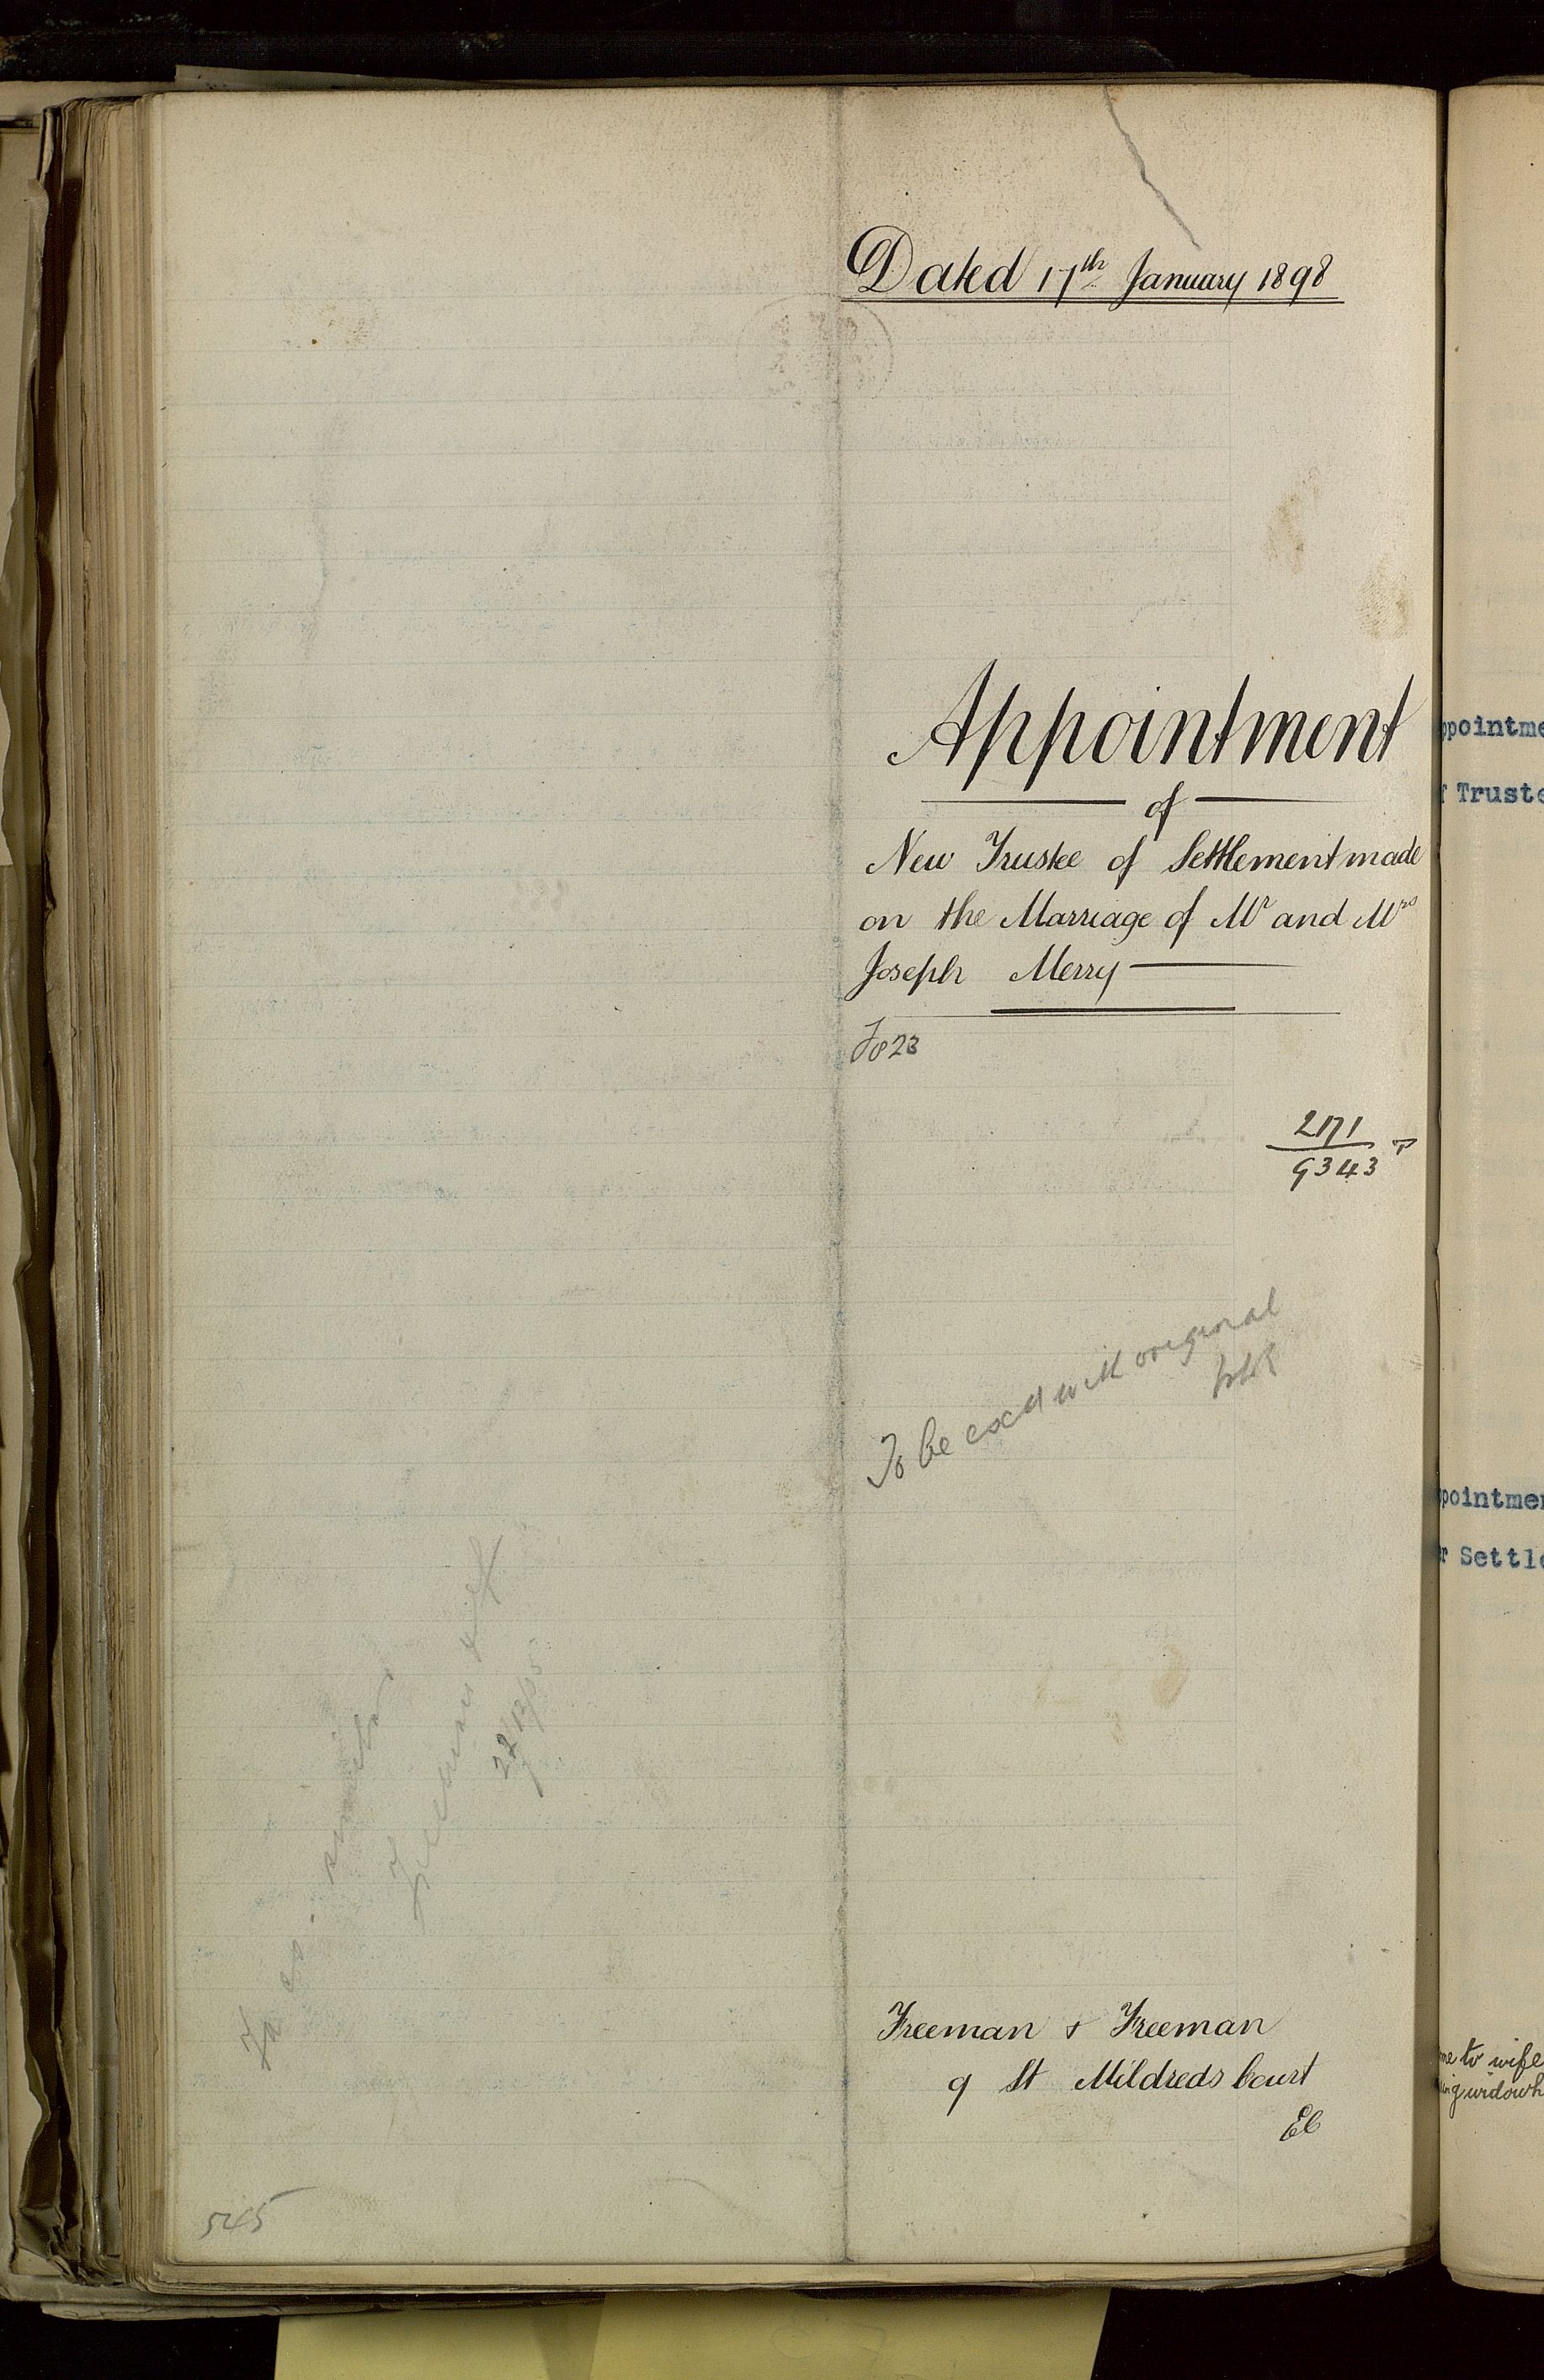 Dated 17th January 1898
Appointment
of
New Trustee of Settlement made
on the Marriage of Mr and Mrs
Joseph Merry
Fo 23
2171
9343
To be exd with original
22/12/05
Freeman & Freeman
9 St Mildreds Court
EC
545
ppointme
f Truste
pointmen
r Settle
me to wife
ing widowh